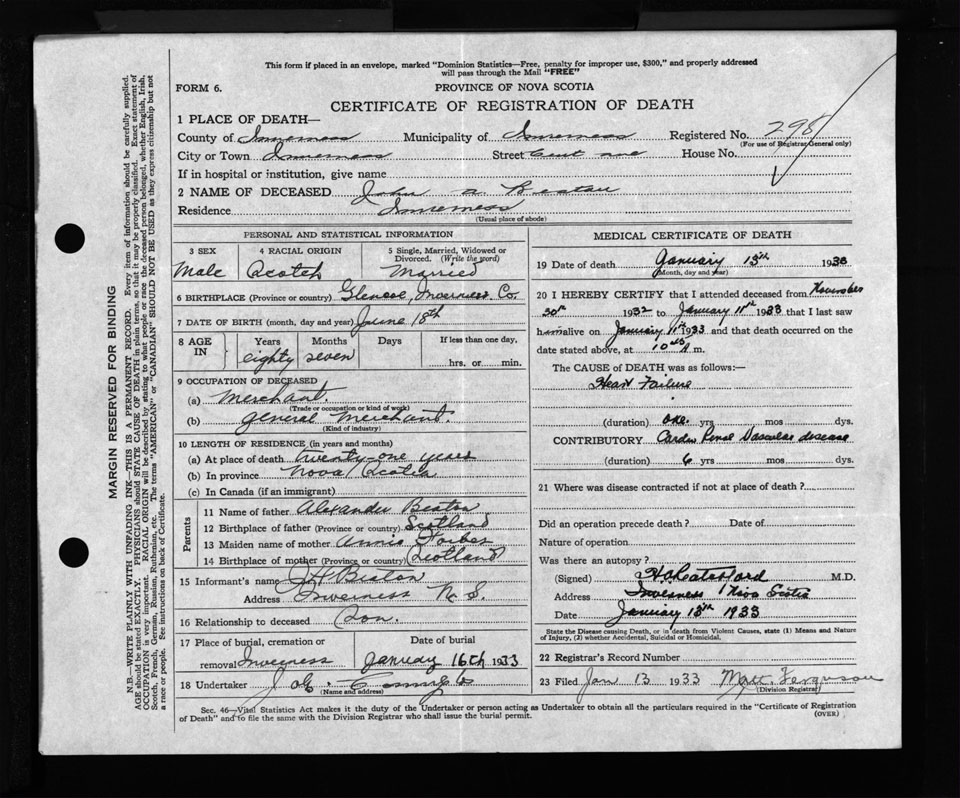 This form if placed in an envelope, marked "Dominion Statistics—Free, penalty for improper use, $300," and properly addressed
will pass through the Mail "FREE"
FORM 6.
PROVINCE OF NOVA SCOTIA
CERTIFICATE OF REGISTRATION OF DEATH
1 PLACE OF DEATH—
County of Inverness Municipality of Inverness Registered No. 298
(For use of Registrar General only)
City or Town Inverness Street Cent ave House No.
If in hospital or institution, give name
2 NAME OF DECEASED John A Beaton
Residence Inverness
(Usual place of abode)
PERSONAL AND STATISTICAL INFORMATION
3 SEX 4 RACIAL ORIGIN 5 Single, Married, Widowed or
Divorced. (Write the word)
Male Scotch Married
6 BIRTHPLACE (Province or country) Glencoe, Inverness Co.
7 DATE OF BIRTH (month, day and year) June 18th
8 AGE IN Years Months Days If less than one day,
eighty seven hrs. or min.
9 OCCUPATION OF DECEASED
(a) Merchant.
(Trade or occupation or kind of work)
(b) general Merchant.
(Kind of industry)
10 LENGTH OF RESIDENCE (in years and months)
(a) At place of death twenty-one years
(b) In province Nova Scotia
(c) In Canada (if an immigrant)
Parents
11 Name of father Alexander Beaton
12 Birthplace of father (Province or country) Scotland
13 Maiden name of mother Annie Forbes
14 Birthplace of mother (Province or country) Scotland
15 Informant's name J H Beaton
Address Inverness N. S.
16 Relationship to deceased Son.
17 Place of burial, cremation or Date of burial
removal Inverness January 16th 1933
18 Undertaker
(Name and address)
MEDICAL CERTIFICATE OF DEATH
19 Date of death January 13th 193
(Month, day and year)
20 I HEREBY CERTIFY that I attended deceased from November
30th 1932 to January 11th 1933 that I last saw
him alive on January 11th 1933 and that death occurred on the
date stated above, at 10 A m.
The CAUSE of DEATH was as follows:—
Heart Failure
(duration) one yrs mos dys.
CONTRIBUTORY Cardio Renal Vascular disease
(duration) 6 yrs mos. dys.
21 Where was disease contracted if not at place of death?
Did an operation precede death? Date of
Nature of operation
Was there an autopsy?
(Signed) M.D.
Address Inverness Nova Scotia
Date January 13th 1933
State the Disease causing Death, or in death from Violent Causes, state (1) Means and Nature
of Injury, (2) whether Accidental, Suicidal or Homicidal.
22 Registrar's Record Number
23 Filed Jan 13 1933 Matt. Ferguson
(Division Registrar)
Sec. 46—Vital Statistics Act makes it the duty of the Undertaker or person acting as Undertaker to obtain all the particulars required in the "Certificate of Registration
of Death" and to file the same with the Division Registrar who shall issue the burial permit.
(OVER)
MARGIN RESERVED FOR BINDING
N.B.—WRITE PLAINLY WITH UNFADING INK—THIS IS A PERMANENT RECORD. Every item of information should be carefully supplied.
AGE should be stated EXACTLY. PHYSICIANS should STATE CAUSE OF DEATH in plain terms, so that it may be properly classified. Exact statement of
OCCUPATION is very important. RACIAL ORIGIN will be described by stating to what people or race the deceased person belonged, whether English, Irish,
Scotch, French, German, Russian, Ruthenian, etc. The terms "AMERICAN" or "CANADIAN" SHOULD NOT BE USED as they express citizenship but not
a race or people. See instructions on back of Certificate.